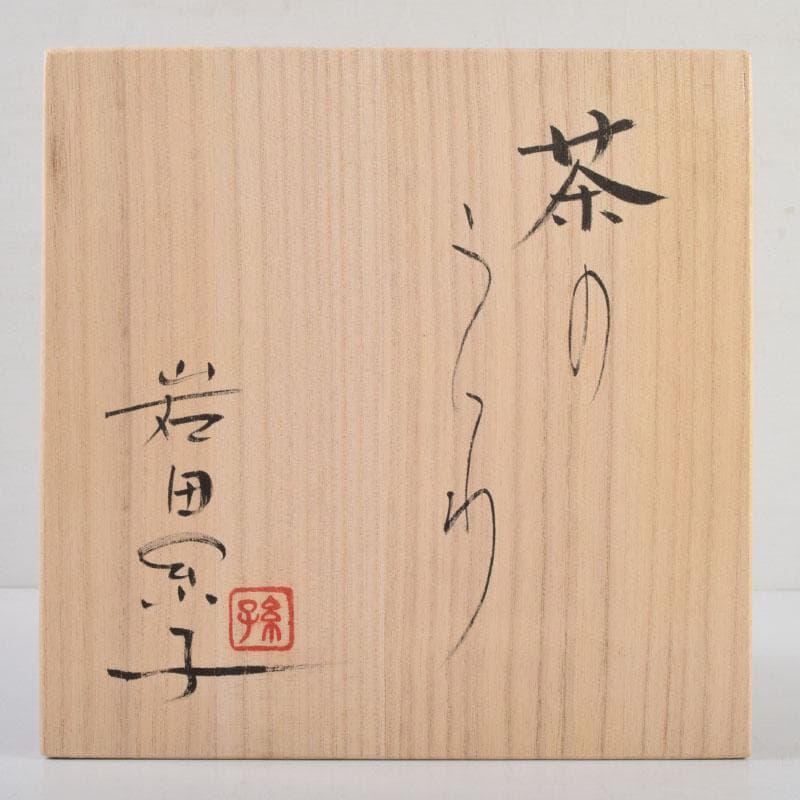 茶の
うつわ
岩田糸子
糸子